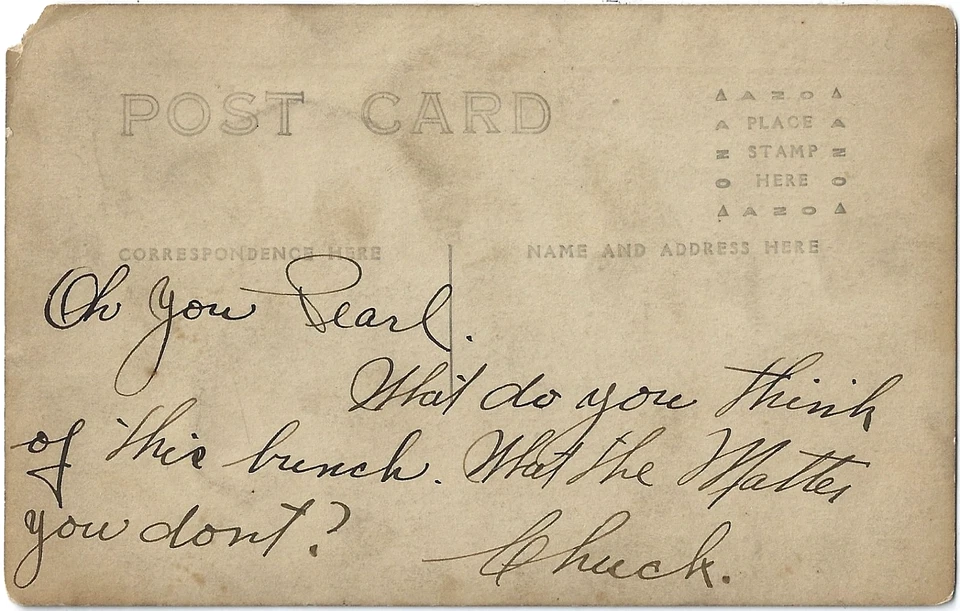 POST CARD
AZO
PLACE
STAMP
HERE
AZO
CORRESPONDENCE HERE
NAME AND ADDRESS HERE
Oh You Pearl.
What do you think
of this bunch. What the Matter
you dont?
Chuck.